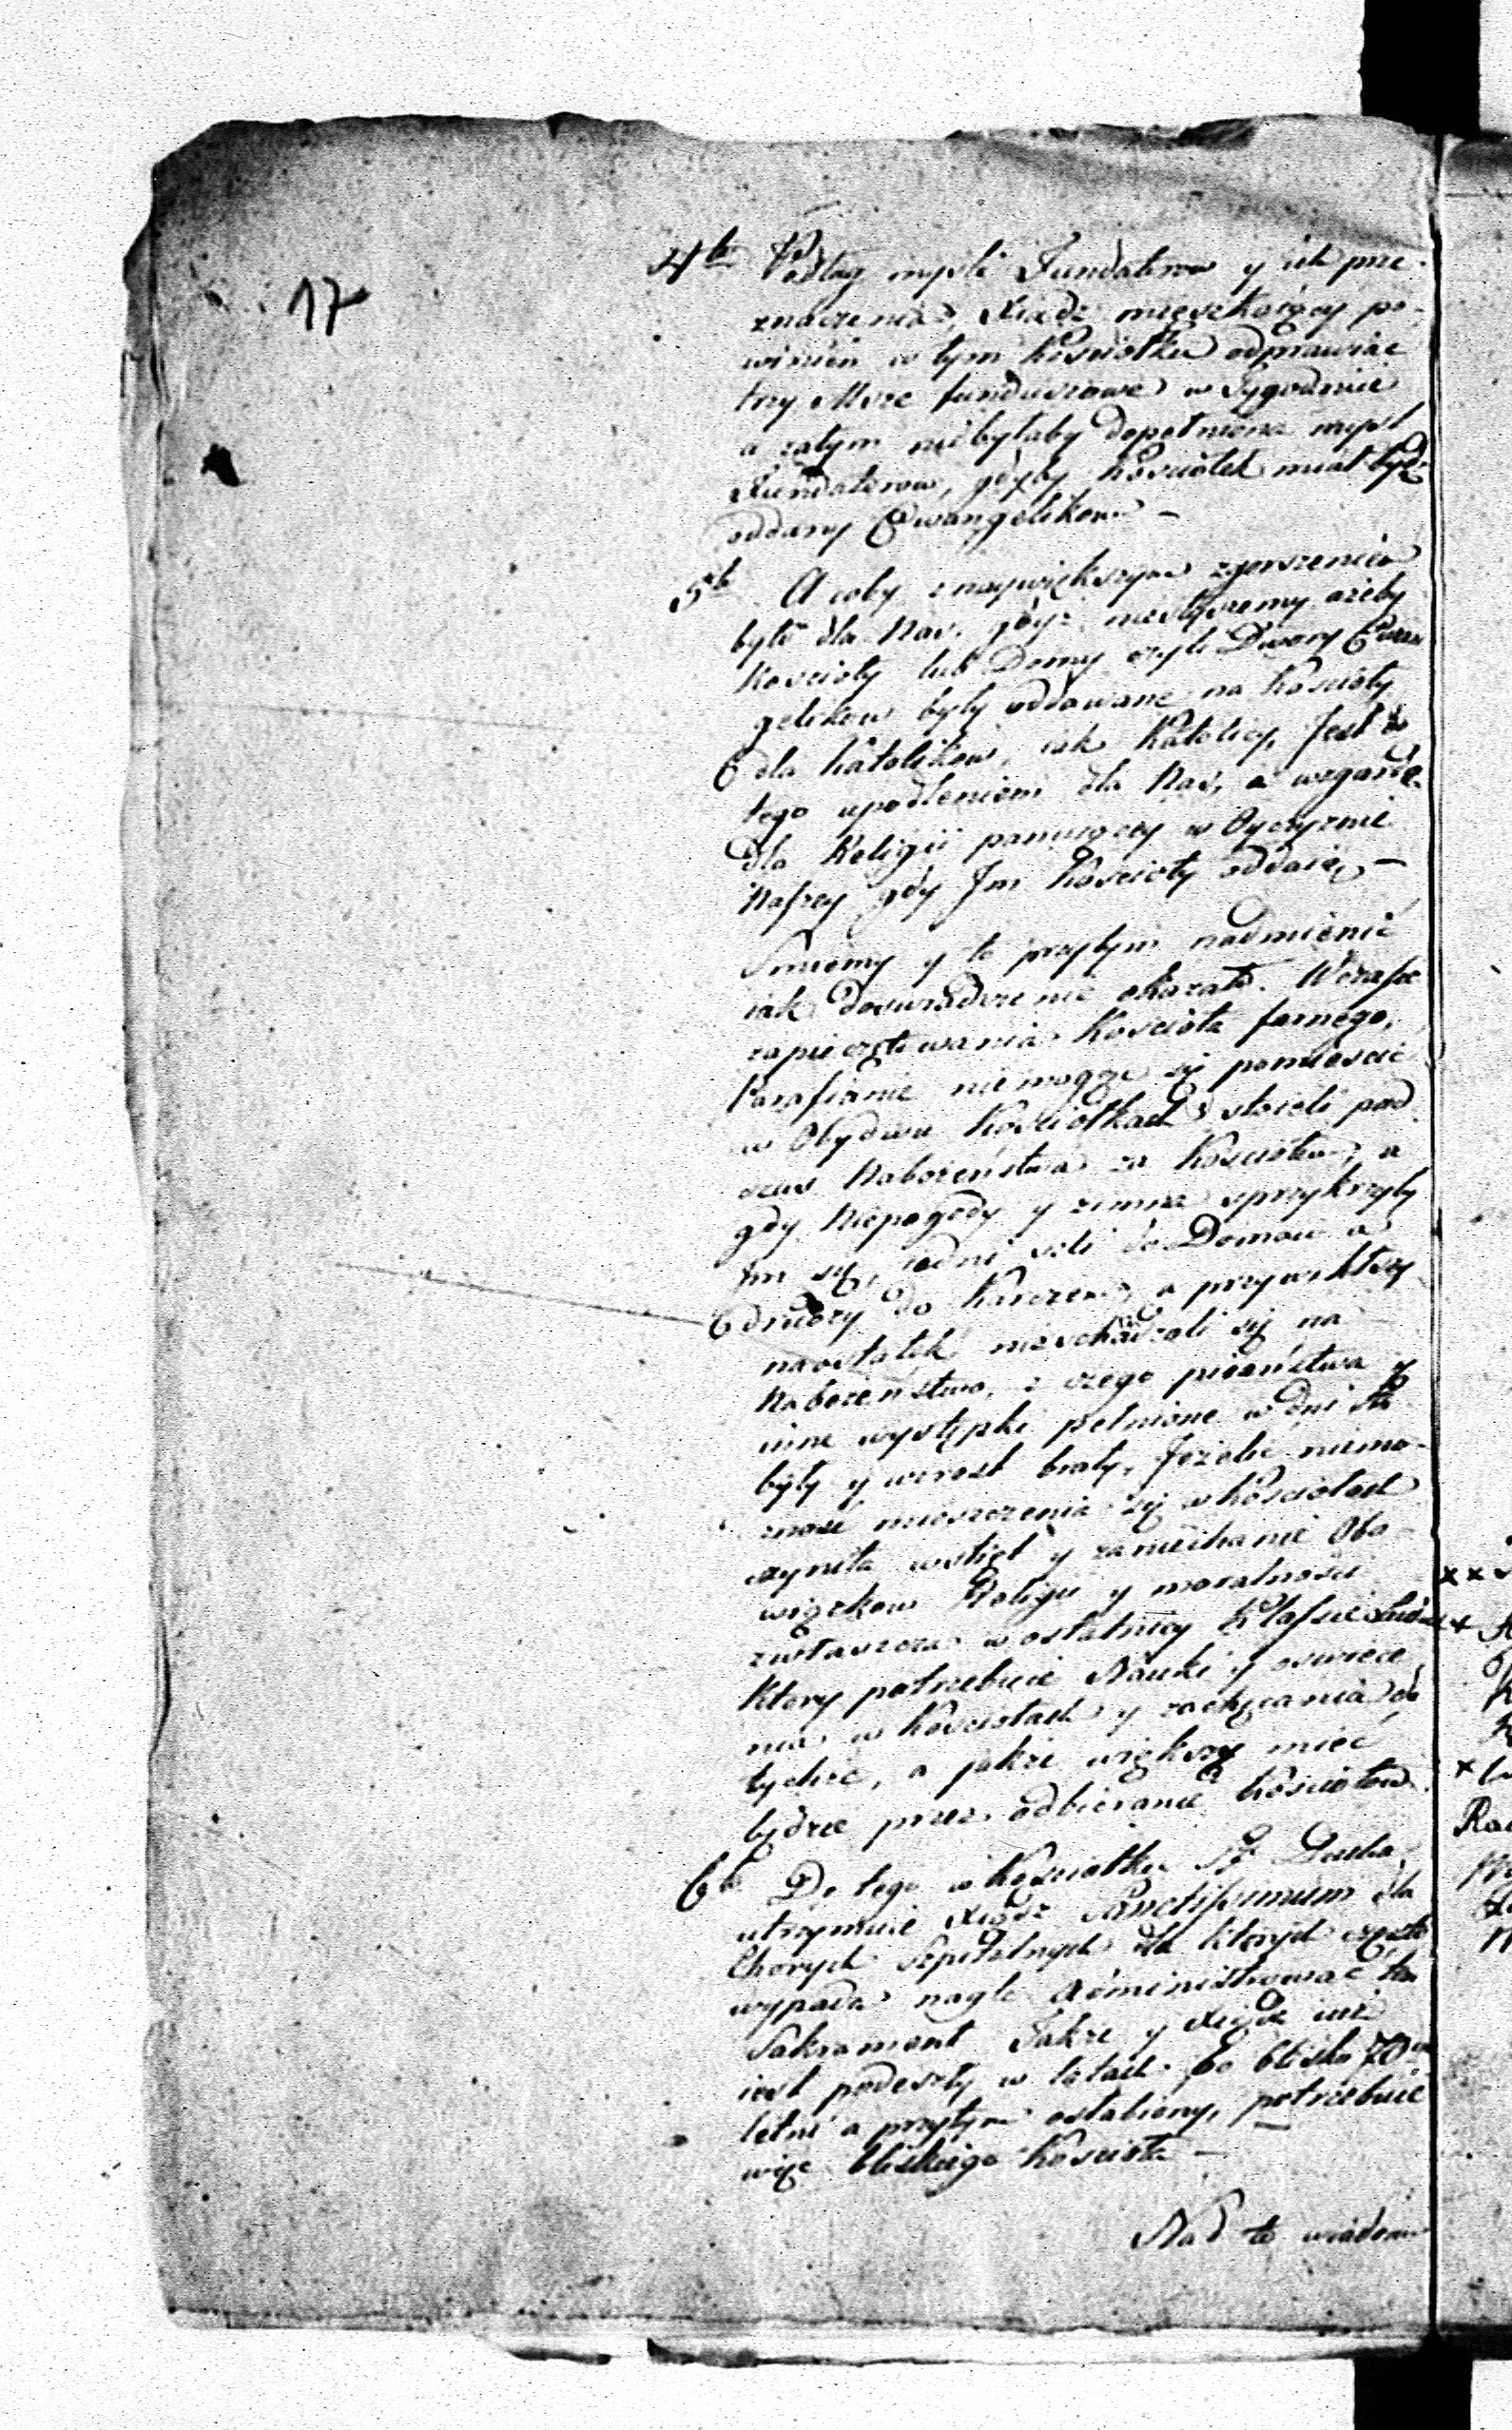 17
4to Podług mysli Fundatorow y ich prze-
znaczenia, Xiądz mieszkaiący po-
winien w tym Kosciołku odprawiac
trzy Msze funduszowe w Tygodniu
a zatym niebyłaby dopełniona mysl
Fundatorow, gdyby Kosciołek miał bydz
oddany Ewangelikom –
5to A coby z naywiększym zgorszeniem
było dla Nas, gdyż niesłyszemy ażeby
Koscioły lub Domy czyli Dwory Ewan
gelikow były oddawane na Koscioły
dla Katolikow, iak Katolicy, Jest to
tego upodleniem dla Nas, a wzgardą
dla Religii panuiącey w Oyczyznie
Naszey gdy Jm Koscioły oddaią –
Smiemy y to przytym nadmienić
iak doswiadczenie okazało. W czasie
zapieczętowania Koscioła farnego,
Parafianie niemogąc się pomiescić
w Obydwu Kosciołkach stoieli pod
czas Nabożeństwa za Kosciołem, a
gdy Niepogody y zimna sprzykrzyły
Jm się, iedni szli do Domow a
drudzy do Karczem, a przywykłszy
naostatek nieschadzali się na
Nabożeństwo, z czego pieaństwa y
inne występki pełnione w dni Ste
były y wzrost brały, Jeżeli niemo-
żnosć mieszczenia się w Kosciołach
czyniła wstręt y zaniechanie Obo-
wiązkow Religii y moralnosci
zwłaszcza w ostatniey Klassie Ludu
Ktory potrzebuie Nauki y oswiece
nia w Kosciołach y zachęcania do
tychże, a jakże większy mieć
będzie przez odbieranie Kosciołow
6to Do tego w Kosciołku Sgo Ducha
utrzymuie Xiądz Sanctissimum dla
Chorych szpitalnych dla ktorych często
wypada nagle Administrować ten
Sakrament Także y Xiądz iuż
iest podeszły w latach bo blisko 70cio
letni a przytym osłabiony, potrzebuie
więc bliskiego Koscioła –
Nad to wiadomo